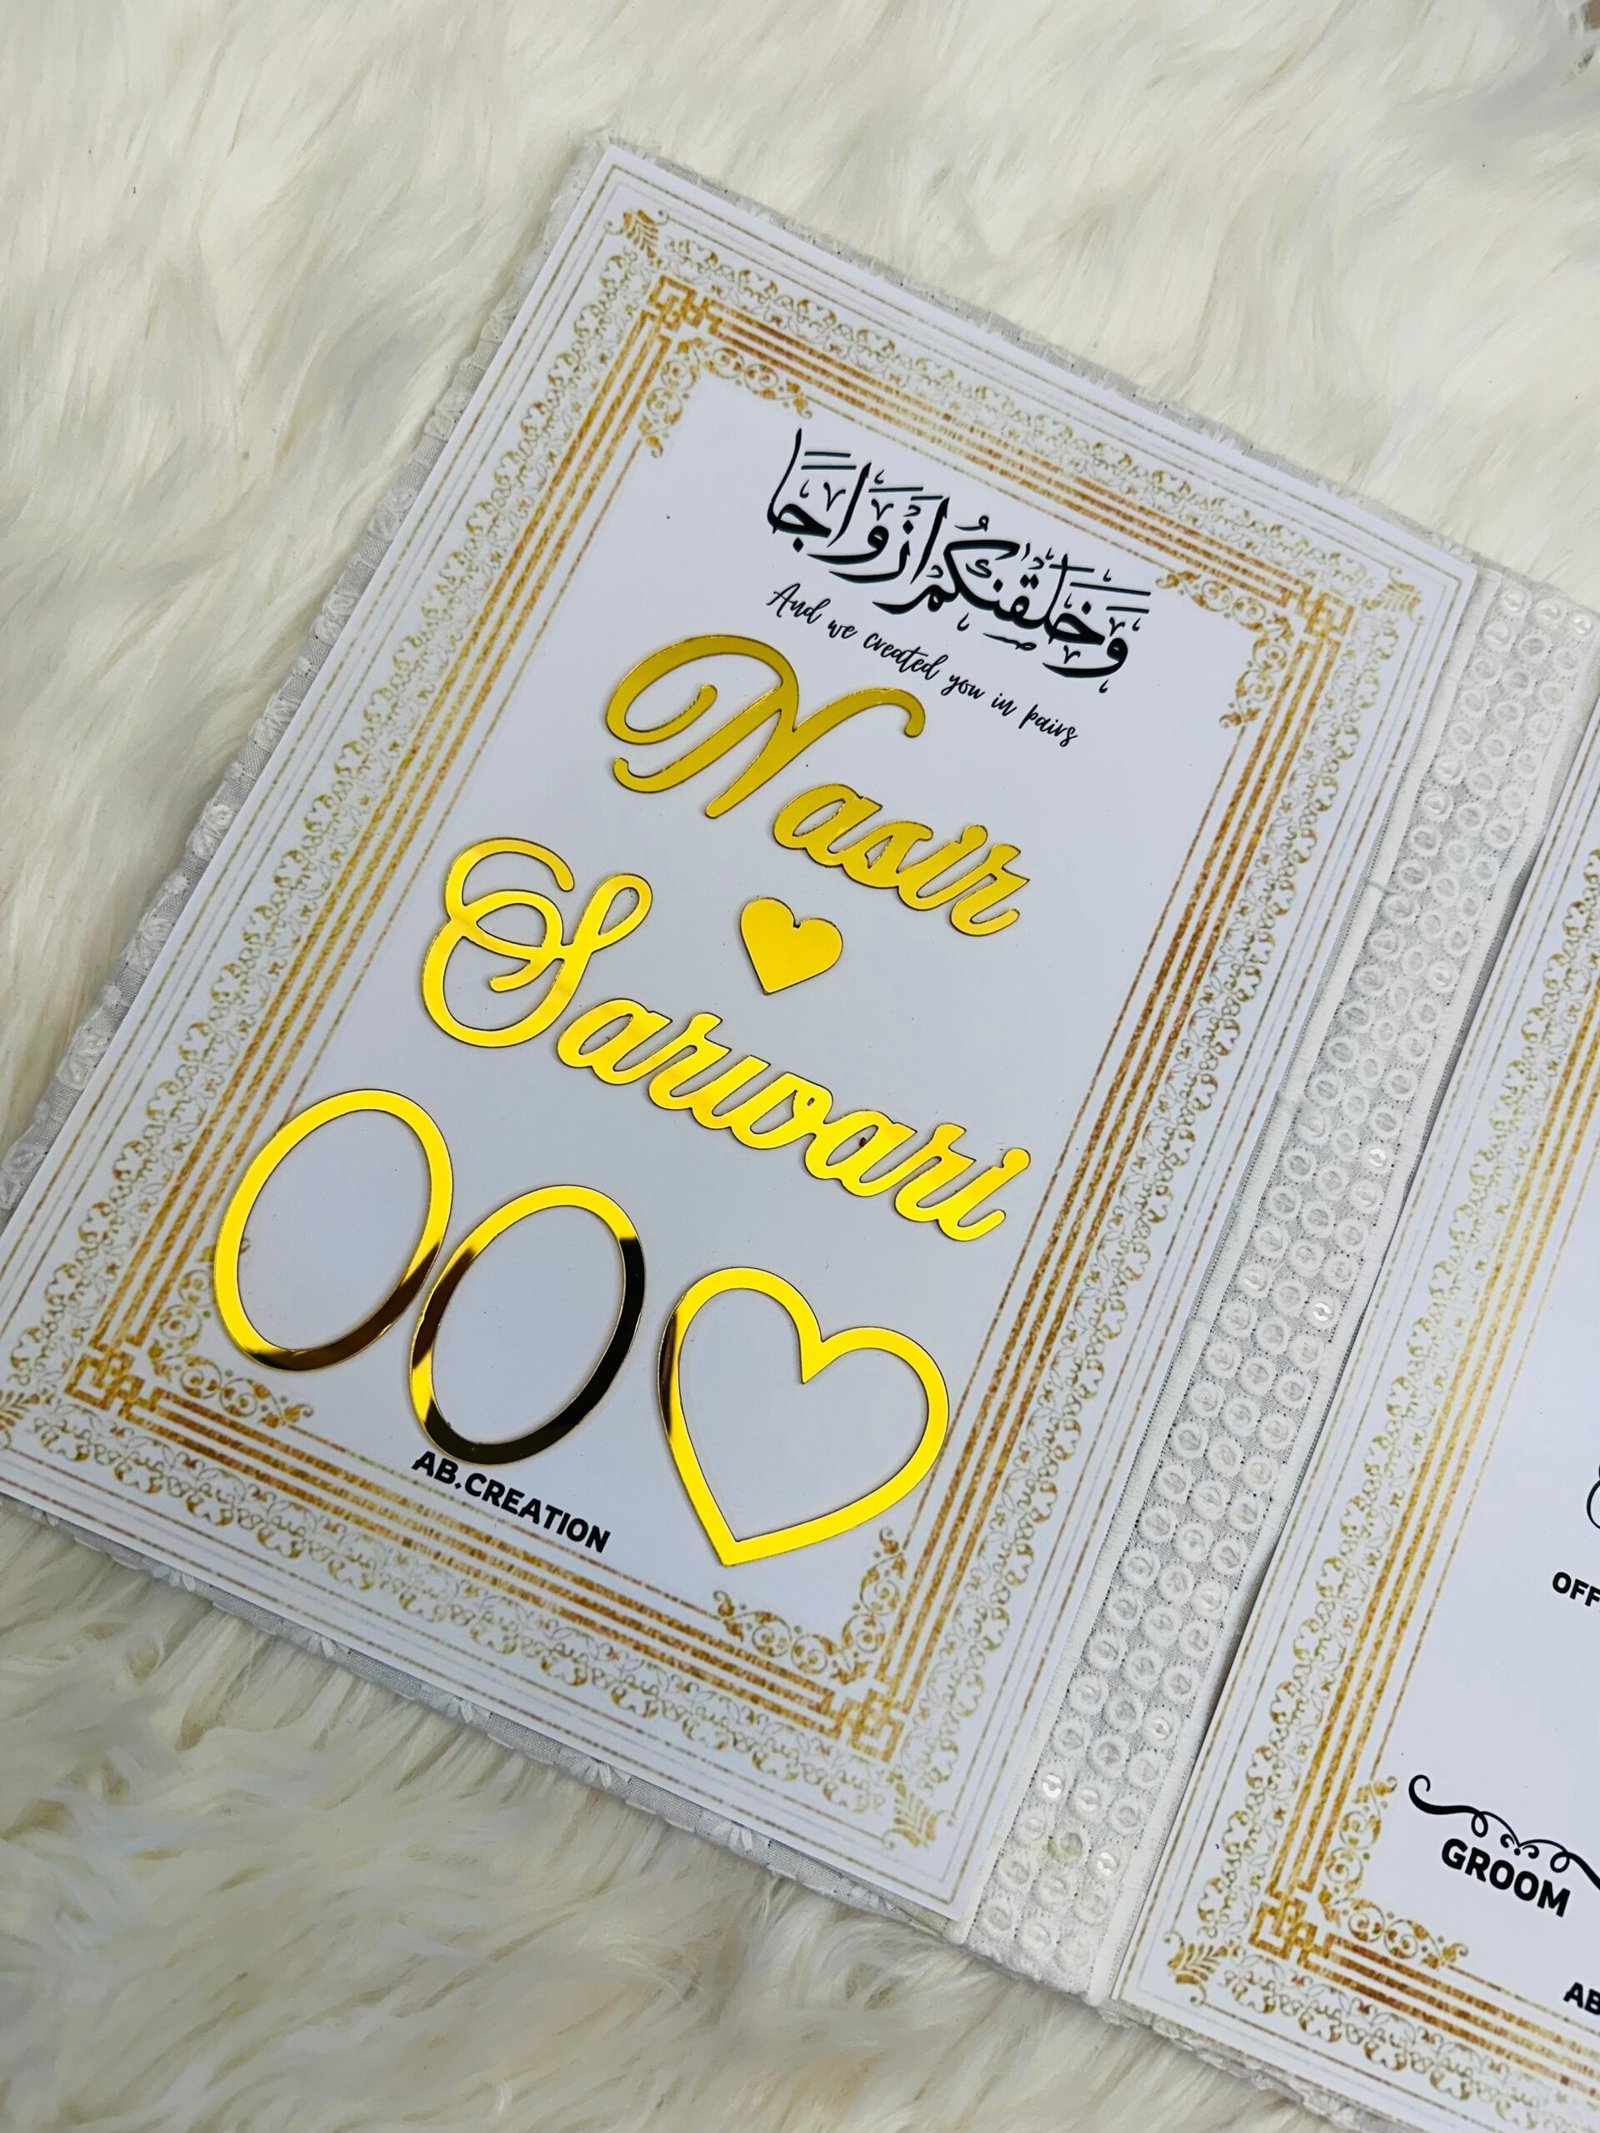 وَخَلَقْنَٰكُمْ أَزْوَٰجًا
And we created you in pairs
Nasir
Sarwari
AB.CREATION
GROOM